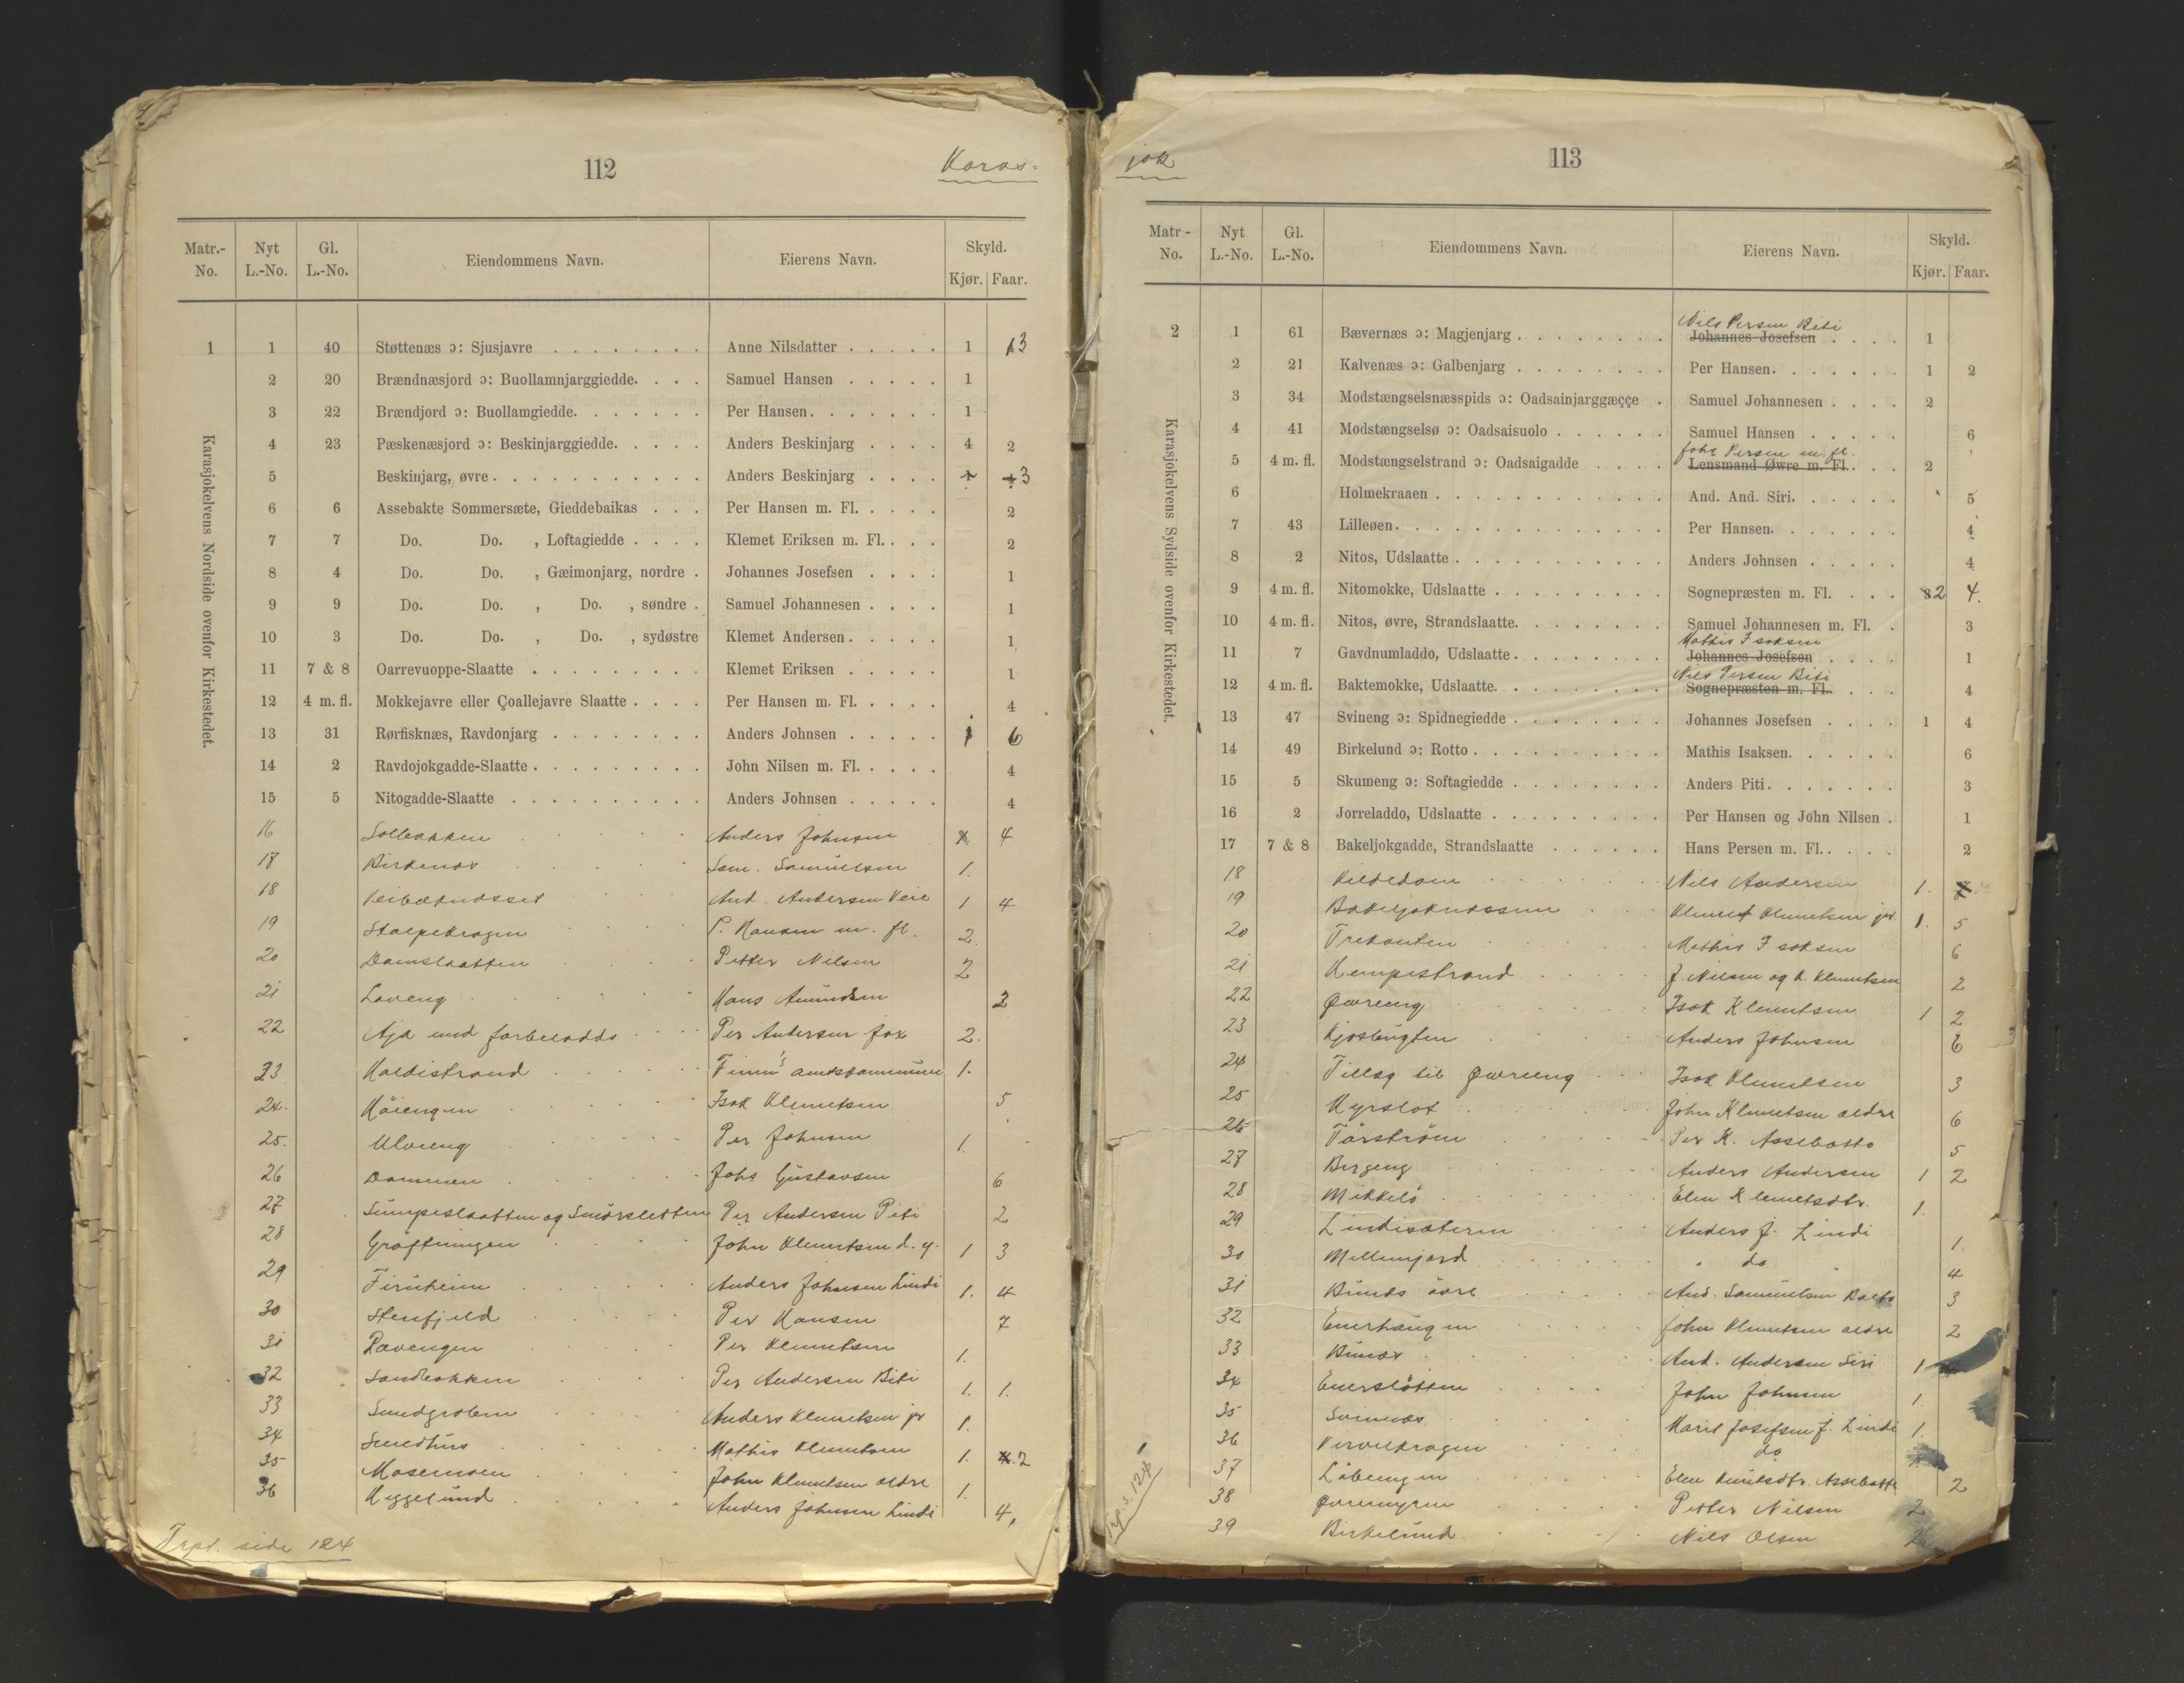 112
Karas-
Matr.-No. Nyt L.-No. Gl. L.-No. Eiendommens Navn. Eierens Navn. Skyld. Kjør. Faar.
Karasjokelvens Nordside ovenfor Kirkestedet.
1 1 40 Støttenæs ɔ: Sjusjavre Anne Nilsdatter 1 3
2 20 Brændnæsjord ɔ: Buollamnjarggiedde. Samuel Hansen 1
3 22 Brændjord ɔ: Buollamgiedde. Per Hansen. 1
4 23 Pæskenæsjord ɔ: Beskinjarggiedde. Anders Beskinjarg 4 2
5 Beskinjarg, øvre. Anders Beskinjarg 3
6 6 Assebakte Sommersæte, Gieddebaikas Per Hansen m. Fl. 2
7 7 Do. Do. , Loftagiedde Klemet Eriksen m. Fl. 2
8 4 Do. Do. , Gæimonjarg, nordre Johannes Josefsen 1
9 9 Do. Do. , Do. , søndre Samuel Johannesen 1
10 3 Do. Do. , Do. , sydøstre Klemet Andersen. 1
11 7 & 8 Oarrevuoppe-Slaatte Klemet Eriksen 1
12 4 m. fl. Mokkejavre eller Çoallejavre Slaatte Per Hansen m. Fl. 4
13 31 Rørfisknæs, Ravdonjarg Anders Johnsen 6
14 2 Ravdojokgadde-Slaatte John Nilsen m. Fl. 4
15 5 Nitogadde-Slaatte Anders Johnsen 4
16 Solbakken Anders Johnsen 4
17 Birkenæs Sam. Samuelsen 1.
18 And. Andersen Veie 1 4
19 Stolpekrogen P. Hansen m. fl. 2.
20 Damslaatten Petter Nilsen 2
21 Løveng Hans Amundsen 2
22 Aja med Per Andersen Jox 2.
23 Haldistrand Finm's amtskommune 1.
24. Høiengen Isak Klemetsen 5
25. Ulveng Per Johnsen 1.
26 Dammen Johs Gustavsen 6
27 Sumpeslaatten og Smörsletten Per Andersen Piti 2
28 Gröftningen John Klemetsen d. y. 1 3
29 Furuheim Anders Johnsen Lindi 1. 4
30 Stenfjeld Per Hansen 7
31 Per Klemetsen 1.
32 Sandbakken Per Andersen Biti 1. 1.
33 Sundgroben Anders Klemetsen jr 1.
34 Smedhus Mathis Klemetsen 1. 2
35 Mosemoen John Klemetsen ældre 1.
36 Heggelund Anders Johnsen Lindi 4,
Trpt. side 124
jok
113
Matr-No. Nyt L.-No. Gl. L.-No. Eiendommens Navn. Eierens Navn. Skyld. Kjør. Faar.
Karasjokelvens Sydside ovenfor Kirkestedet.
Nils Persen Biti
2 1 61 Bævernæs ɔ: Magjenjarg Johannes Josefsen 1
2 21 Kalvenæs ɔ: Galbenjarg Per Hansen. 1 2
3 34 Modstængselsnæsspids ɔ: Oadsainjarggæççe Samuel Johannesen 2
4 41 Modstængselsø ɔ: Oadsaisuolo Samuel Hansen 6
Johs Persen m. fl.
5 4 m. fl. Modstængselstrand ɔ: Oadsaigadde Lensmand Øwre m. Fl. 2
6 Holmekraaen And. And. Siri. 5
7 43 Lilleøen. Per Hansen. 4
8 2 Nitos, Udslaatte Anders Johnsen 4
9 4 m. fl. Nitomokke, Udslaatte Sognepræsten m. Fl. 2 4.
10 4 m. fl. Nitos, øvre, Strandslaatte. Samuel Johannesen m. Fl. 3
Mathis Isaksen
11 7 Gavdnumladdo, Udslaatte Johannes Josefsen 1
Nils Persen Biti
12 4 m. fl. Baktemokke, Udslaatte. Sognepræsten m. Fl. 4
13 47 Svineng ɔ: Spidnegiedde Johannes Josefsen 1 4
14 49 Birkelund ɔ: Rotto Mathis Isaksen. 6
15 5 Skumeng ɔ: Softagiedde Anders Piti. 3
16 2 Jorreladdo, Udslaatte Per Hansen og John Nilsen 1
17 7 & 8 Bakeljokgadde, Strandslaatte Hans Persen m. Fl. 2
18 Kildedam Nils Andersen 1.
19 Bakeljoknæssen Klemet Klemetsen jr. 1. 5
20 Trekanten Mathis Isaksen 6
21 Kempestrand J. Nilsen og K. Klemetsen 2
22 Øvreeng Isak Klemetsen 1 2
23 Kjosbugten Anders Johnsen 6
24 Tillæg til Øvreeng Isak Klemetsen 3
25 Myrslot John Klemetsen ældre 6
26 Törström Per K. Assebakto 5
27 Birgeng Anders Andersen 1 2
28 Mikkelö Elen Klemetsdtr. 1.
29 Lindisæteren Anders J. Lindi 1.
30 Mellemjord do 4
31 Bunæs övre And. Samuelsen Balto 3
32 Enerhaugen John Klemetsen ældre 2
33 Bunæs And. Andersen Siri 1
34 Enerslötten John Johnsen 1.
35 Svinnæs Marit Josefsen J. Lindi 1.
36 Vervelkrogen do
37 Löbengen Elen Assebakte 2
38 Øvremyren Petter Nilsen 2
39 Birkelund Nils Olsen
Trp. s. 124